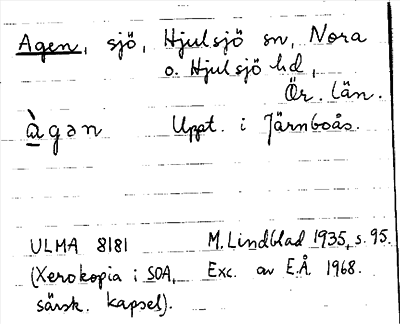 Agen, sjö, Hjulsjö sn, Nora
o. Hjulsjö hd,
Ör. län.
àgən Uppt. i Järnboås.
ULMA 8181 M. Lindblad 1935, s. 95.
(Xerokopia i SOA, Exc. av E.Å. 1968.
särsk. kapsel).